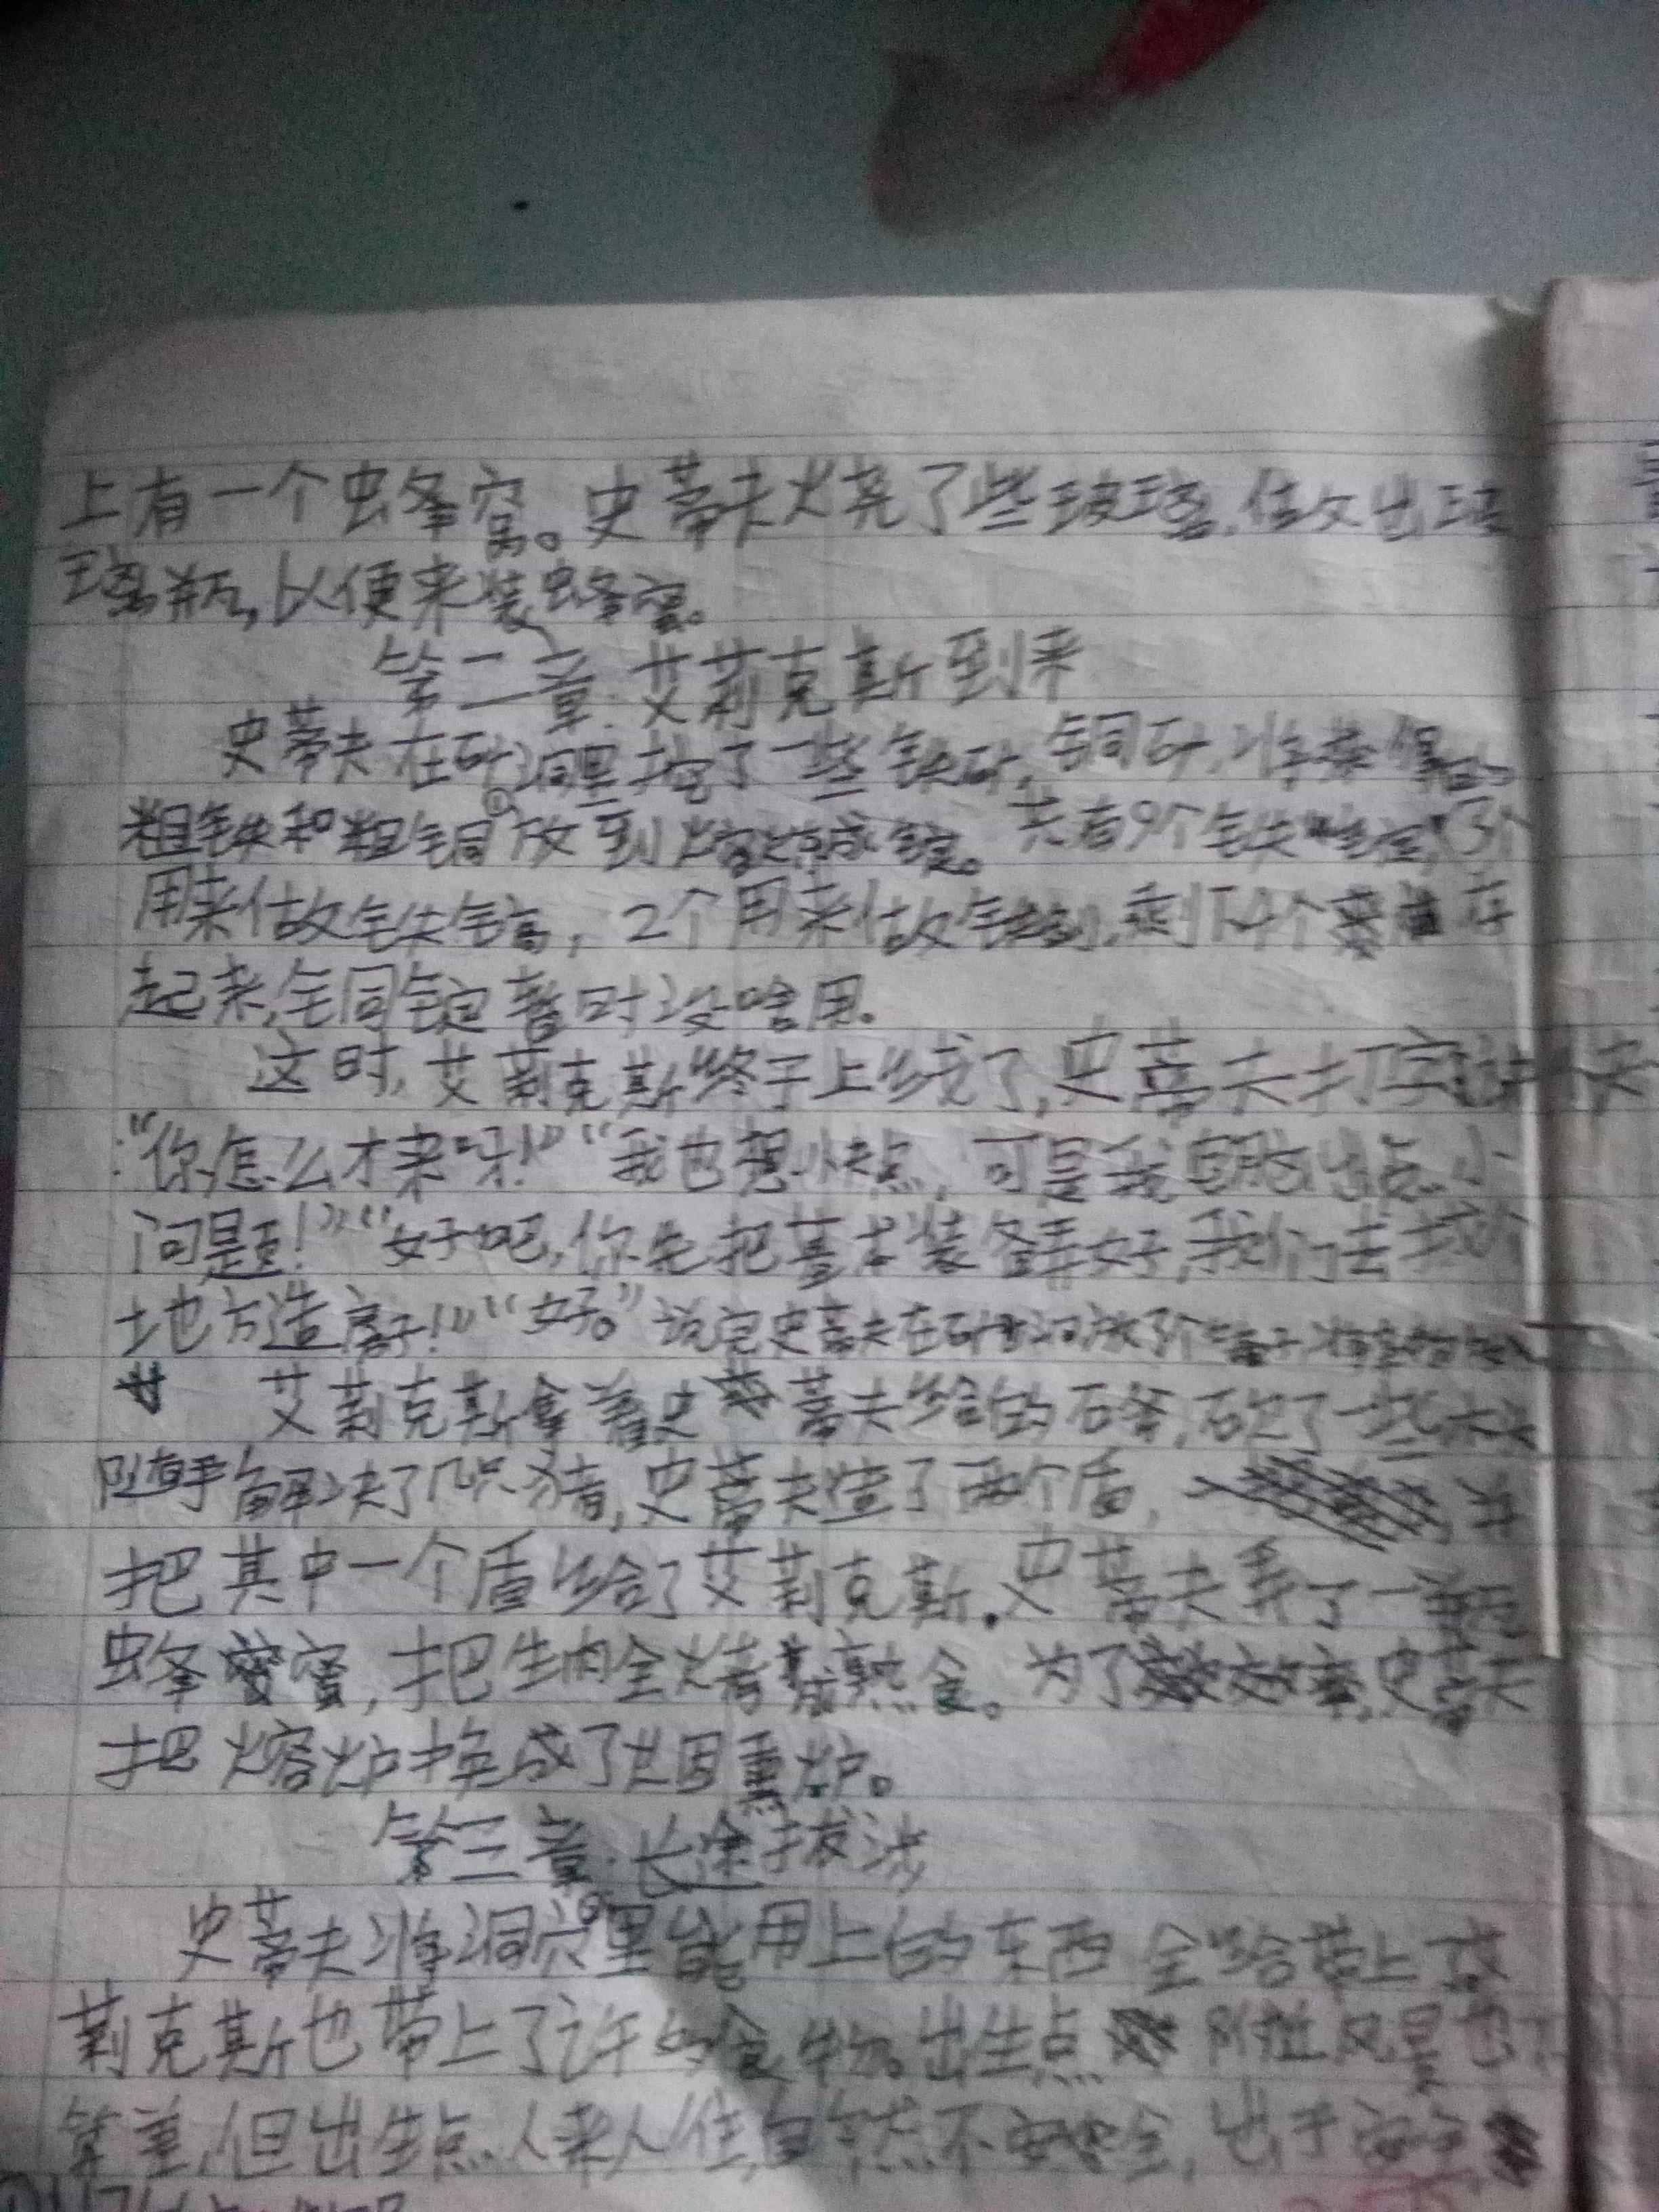 上有一个蜂窝。史蒂夫烧了些玻璃,做出玻
璃瓶,以便来装蜂蜜。
第二章:艾莉克斯到来
史蒂夫在矿洞里挖了一些铁矿,铜矿,将获得的
粗铁和粗铜放到火窑烧成锭。共有9个铁锭,3个
用来做铁镐,2个用来做铁剑,剩下4个存
起来,铜锭暂时没啥用。
这时,艾莉克斯终于上线了,史蒂夫打字
:“你怎么才来呀!”“我也想快点,可是我电脑出点小
问题!”“好吧,你先把基本装备弄好,我们去找个
地方造房子!”“好。”说完史蒂夫在矿洞放了个箱子
艾莉克斯拿着史蒂夫给的石斧,砍了一些木头
随手解决了几只猪,史蒂夫造了两个盾,并
把其中一个盾给了艾莉克斯。史蒂夫弄了一瓶
蜂蜜,把生肉全烤成熟食。为了效率,史蒂夫
把熔炉换成了烟熏炉。
第三章:长途拔涉
史蒂夫将洞穴里能用上的东西全给带上,艾
莉克斯也带上了许多食物。出生点附近风景也不
算差,但出生点人来人往,自然不安全,出于安全